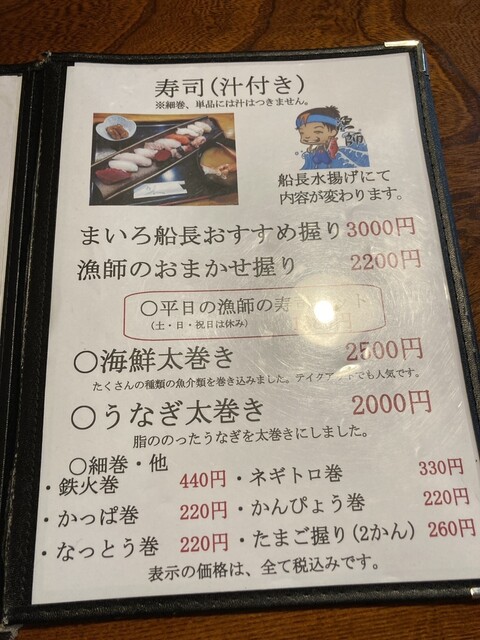 寿司(汁付き)
※細巻、単品には汁はつきません。
漁師
船長水揚げにて
内容が変わります。
まいろ船長おすすめ握り 3000円
漁師のおまかせ握り 2200円
〇平日の漁師の寿
(土・日・祝日は休み)
〇海鮮太巻き 2500円
たくさんの種類の魚介類を巻き込みました。テイクアウトでも人気です。
〇うなぎ太巻き 2000円
脂ののったうなぎを太巻きにしました。
〇細巻・他
・鉄火巻 440円 ・ネギトロ巻 330円
・かっぱ巻 220円 ・かんぴょう巻 220円
・なっとう巻 220円 ・たまご握り(2かん) 260円
表示の価格は、全て税込みです。